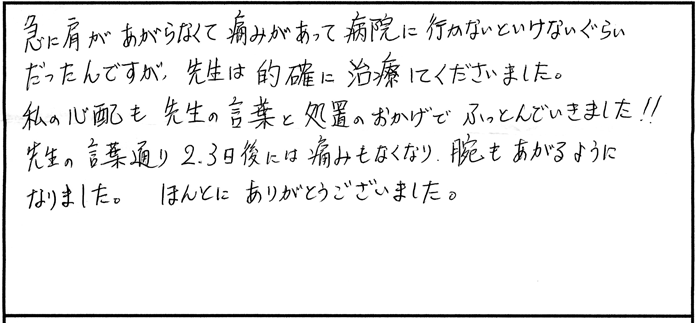 急に肩があがらなくて痛みがあって病院に行かないといけないぐらい
だったんですが、先生は的確に治療してくださいました。
私の心配も先生の言葉と処置のおかげでふっとんでいきました!!
先生の言葉通り2.3日後には痛みもなくなり、腕もあがるように
なりました。 ほんとにありがとうございました。